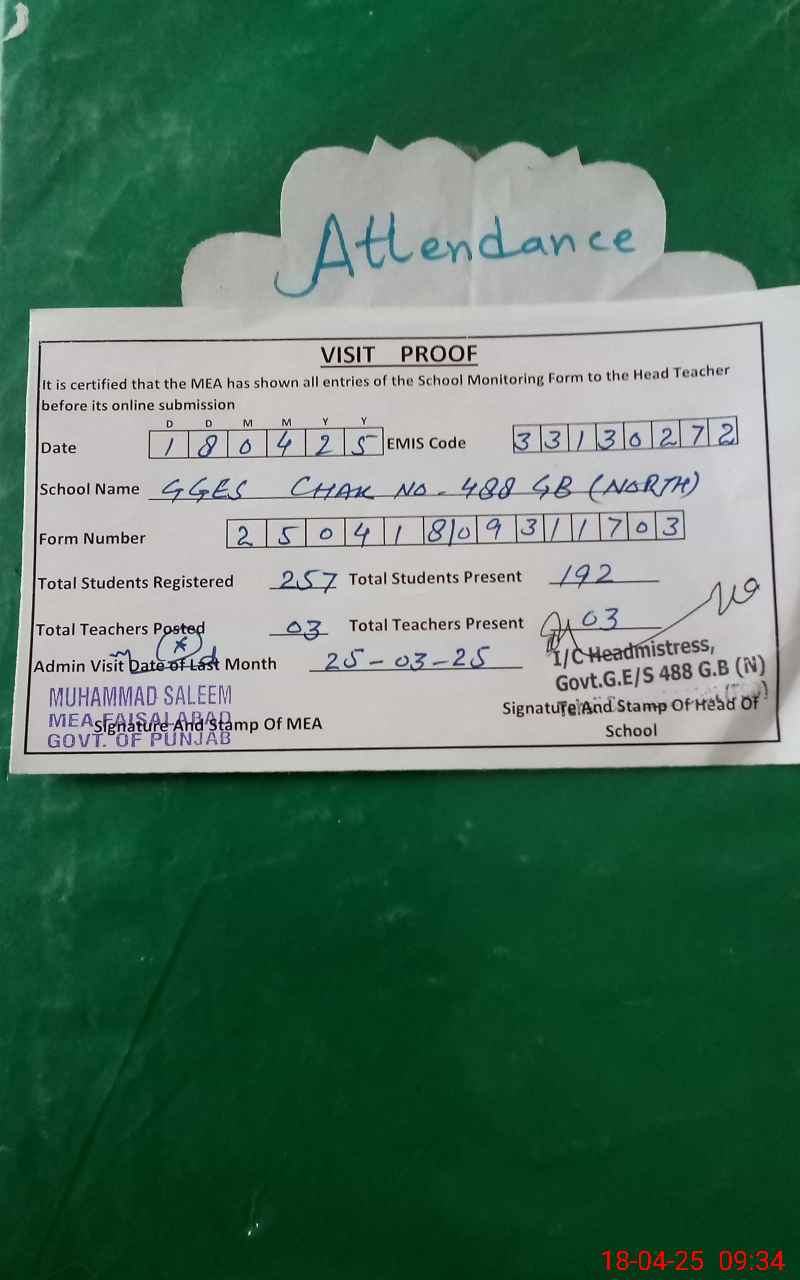 Attendance
VISIT PROOF
It is certified that the MEA has shown all entries of the School Monitoring Form to the Head Teacher
before its online submission
D D M M Y Y
Date 1 8 0 4 2 5 EMIS Code 3 3 1 3 0 2 7 2
School Name GGES CHAK NO. 488 GB (NORTH)
Form Number 2 5 0 4 1 8 0 9 3 1 1 7 0 3
Total Students Registered 257 Total Students Present 192
Total Teachers Posted 03 Total Teachers Present 03
Admin Visit Date of Last Month 25-03-25
I/C Headmistress,
Govt.G.E/S 488 G.B (N)
MUHAMMAD SALEEM
MEA FAISALABAD
GOVT. OF PUNJAB
Signature And Stamp Of MEA
Signature And Stamp Of Head Of
School
18-04-25 09:34